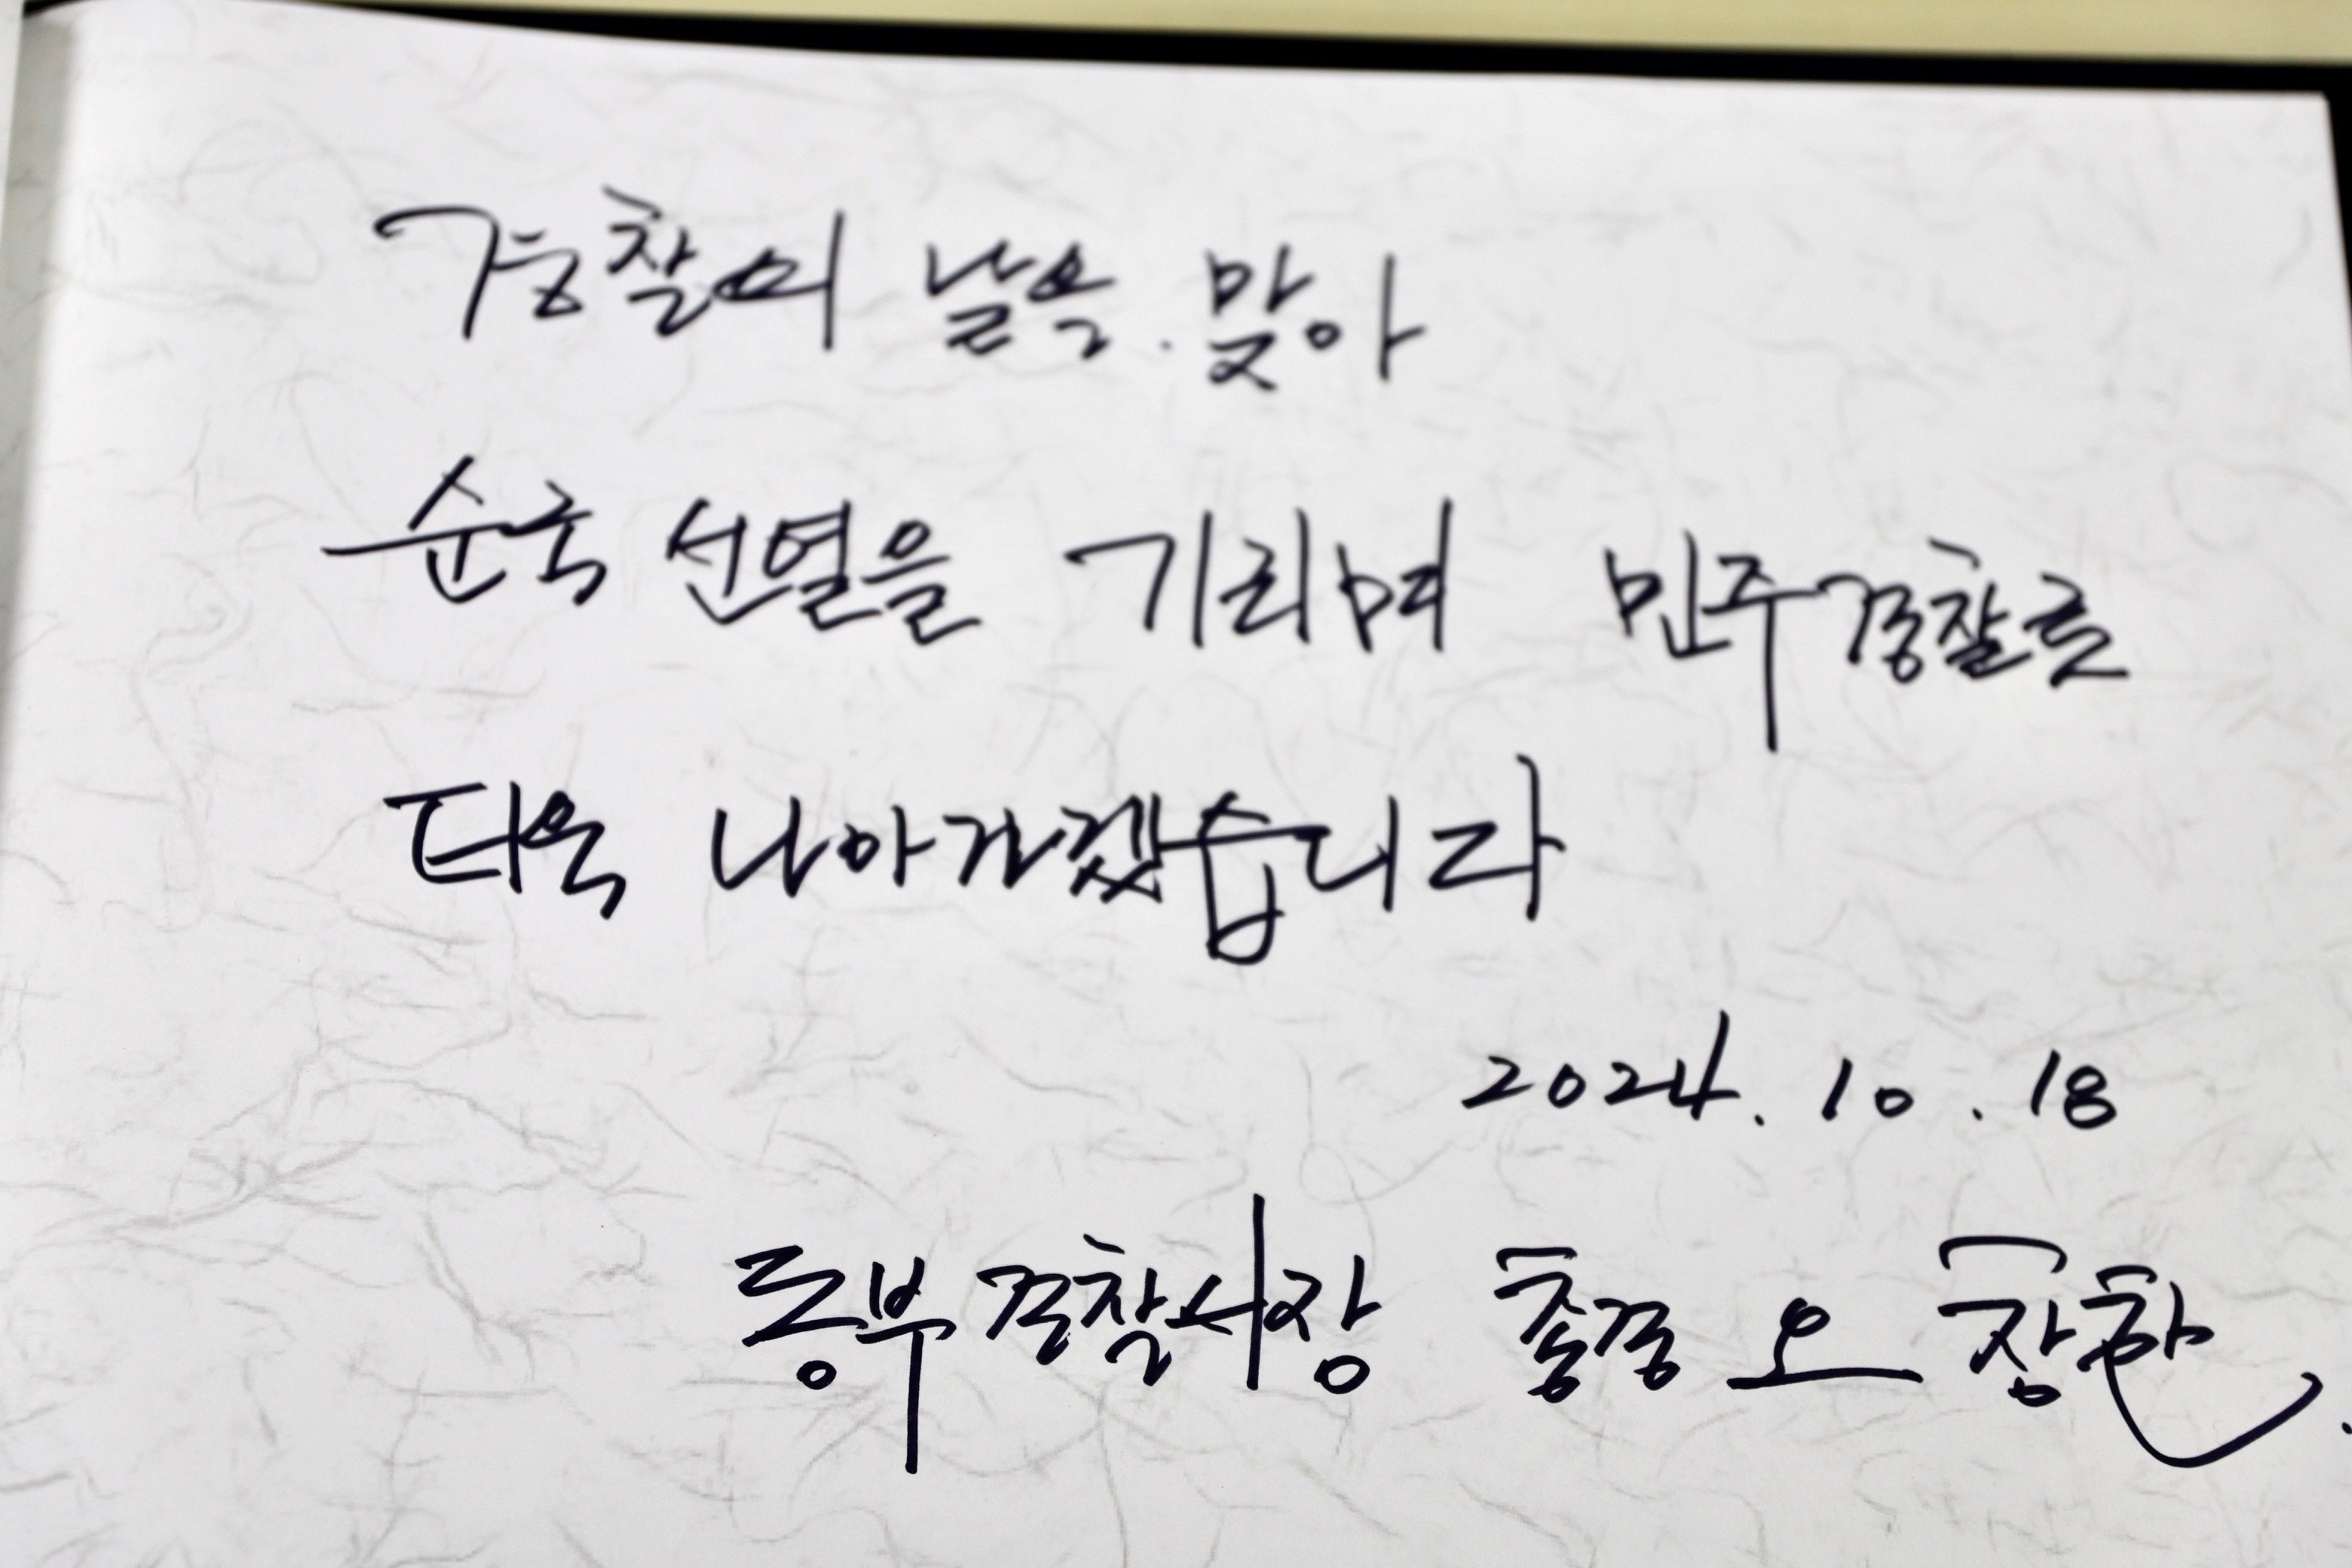 경찰의 날을. 맞아
순국 선열을 기리며 민주경찰로
더욱 나아가겠습니다
2024. 10. 18
동부경찰서장 총경 오창한.